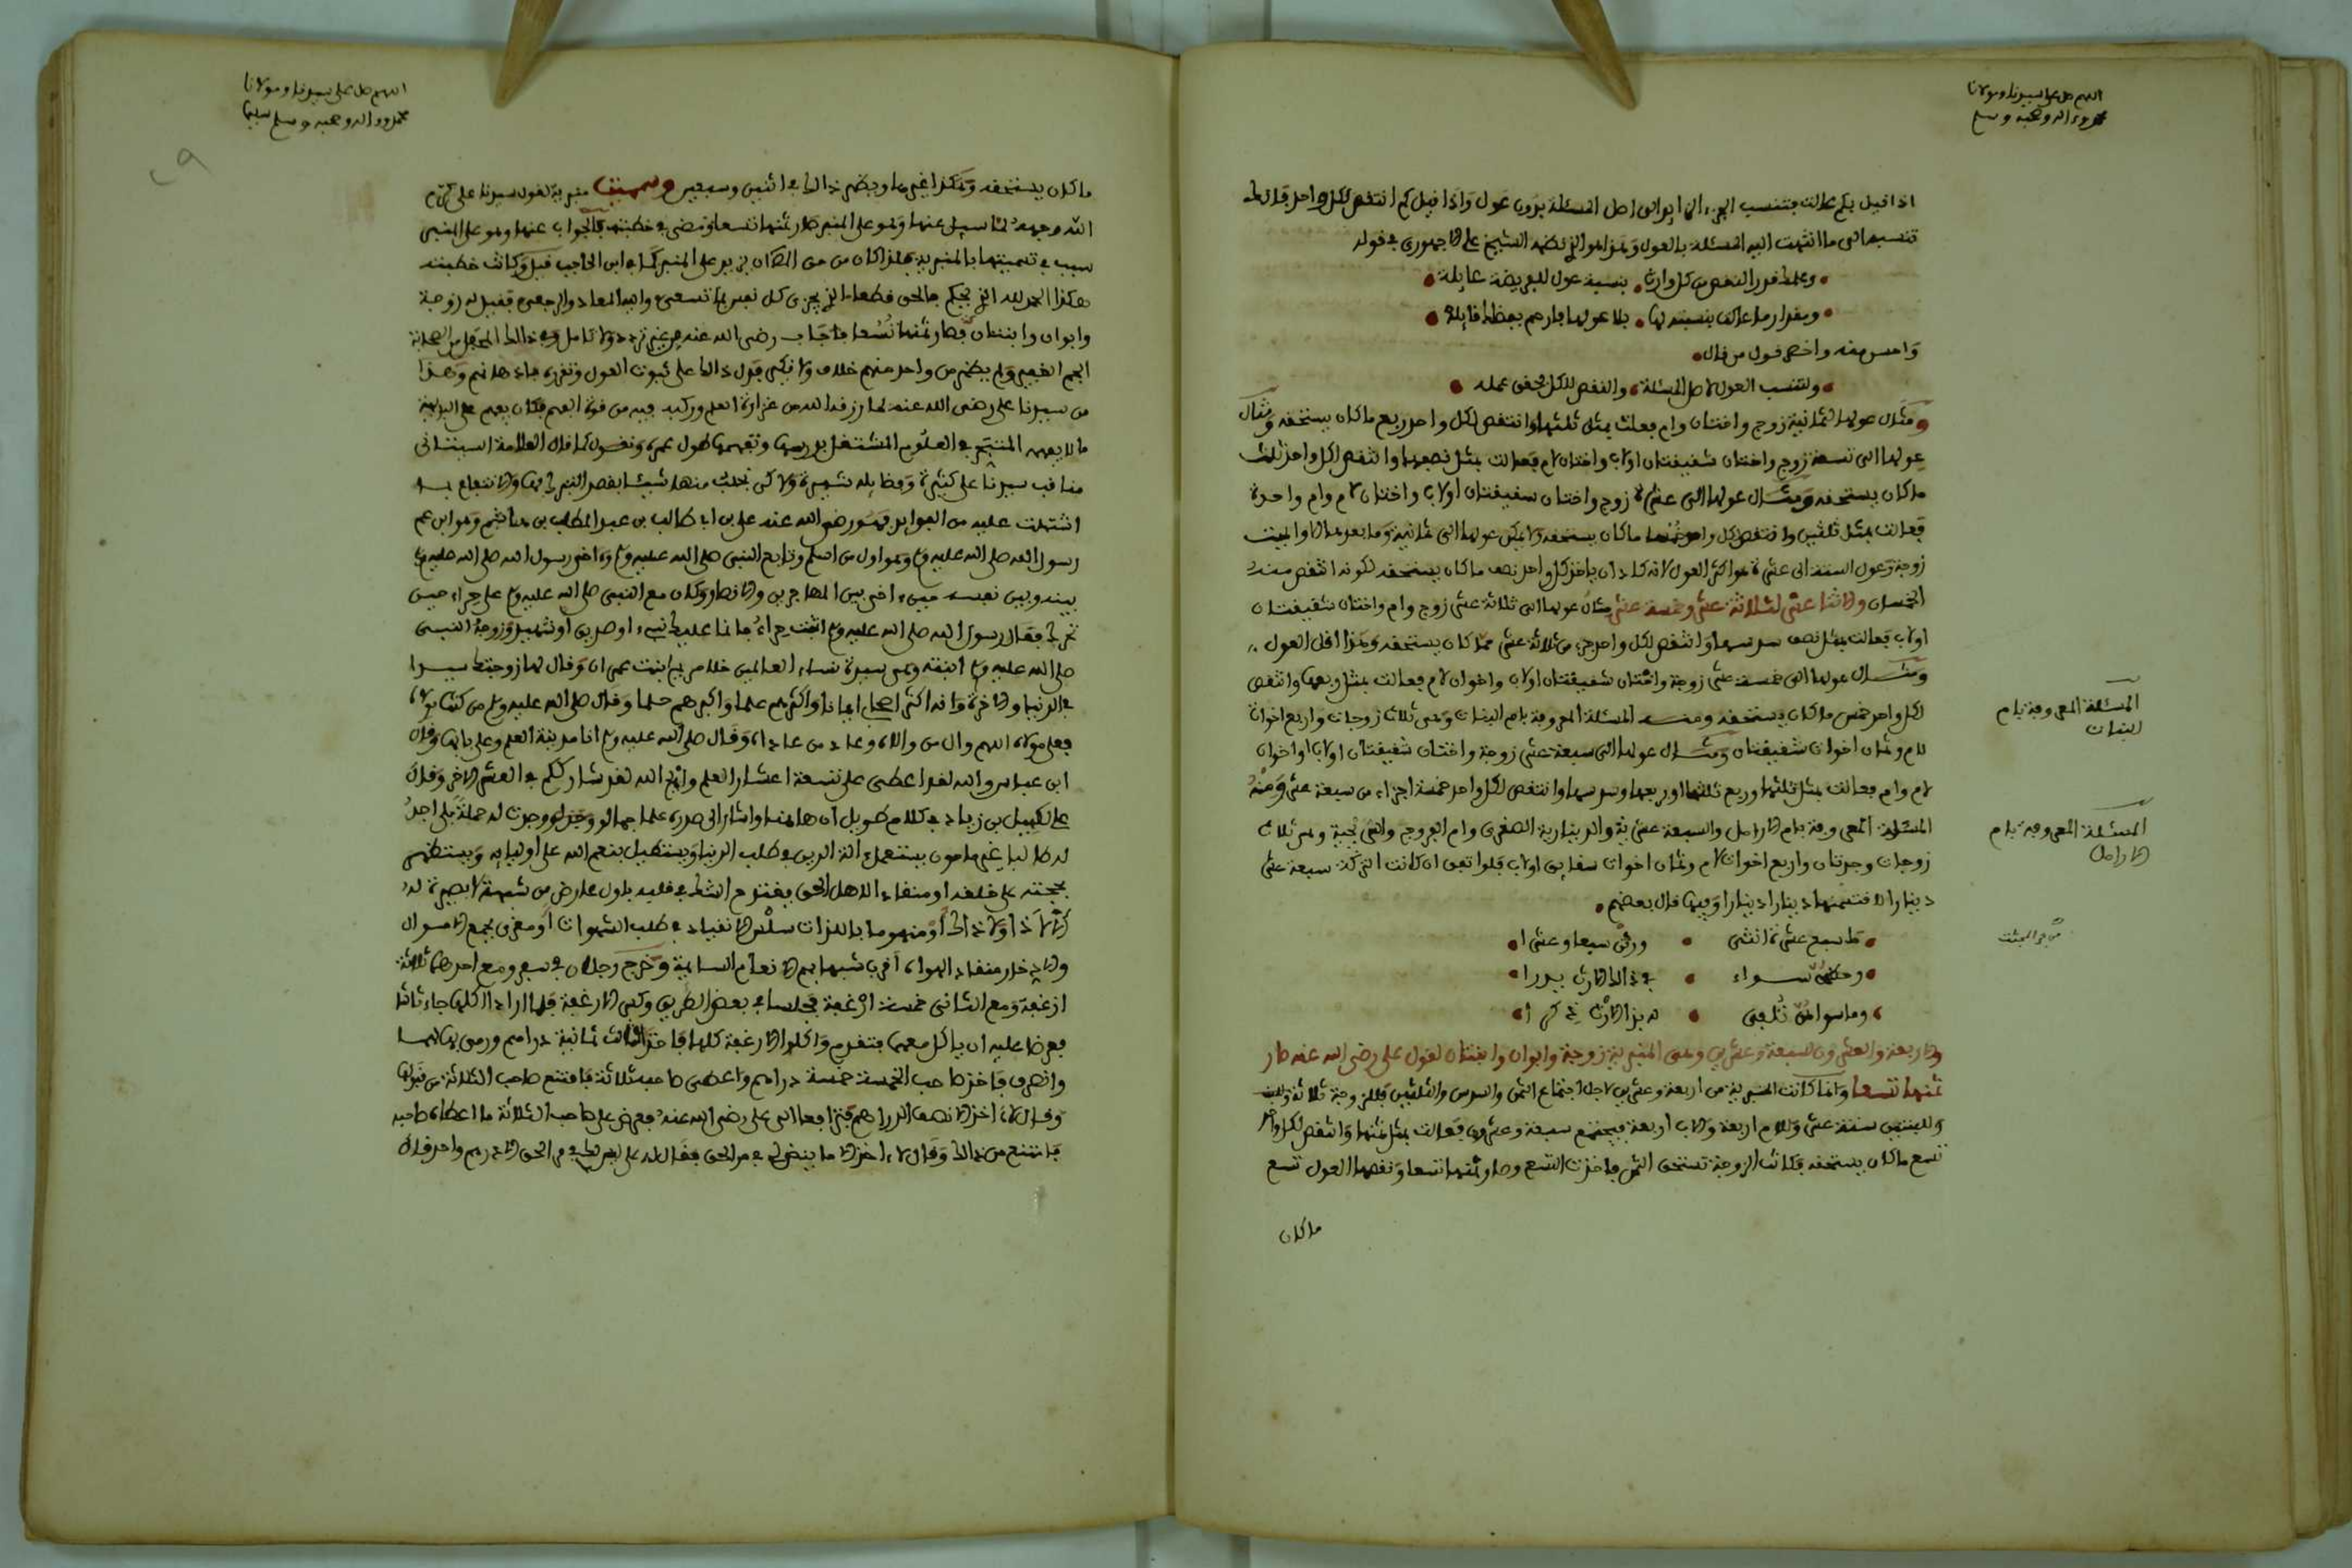 اللهم صل على سيدنا ومولانا
محمد وءاله وصحبه وسلم
اذا قيل بكم عالت فتنسب الجزء الزايد الى اصل المسئلة بدون عول واذا قيل كم انتقص لكل واحد فانك
تنسبه الى ما انتهت اليه المسئلة بالعول وهذا هو الذي نظمه الشيخ على الاجهوري في قوله
وعلمك قدر النقص من كل وارث بنسبة عول للفريضة عايلة
ومقدار ما عالت بنسبته لها بلا عولها فارحم بفضلك قايله
واحسن منه واخصر قول من قال
ولتنسب العول لاصل المسئلة والنقص للكل فحقق عمله
ومثال عولها لثمانية زوج واختان وام فعالت بمثل ثلثها وانتقص لكل واحد ربع ما كان يستحقه ومثال
عولها الى تسعة زوج واختان شقيقتان او لاب واختان لام فعالت بمثل نصفها وانتقص لكل واحد ثلث
ما كان يستحقه ومثال عولها الى عشرة زوج واختان شقيقتان او لاب واختان لام وام واحدة
فعالت بمثل ثلثيها وانتقص لكل واحد خمسا ما كان يستحقه ولا يمكن عولها الى ثمانية وما بعدها الا والميت
زوجة وعول الستة الى عشرة هو اكثر العول لانه كاد ان ياخذ كل واحد نصف ما كان يستحقه لكونه انتقص منه
الخمسان والاثنا عشر لثلاثة عشر وخمسة عشر مثال عولها الى ثلاثة عشر زوج وام واختان شقيقتان
او لاب فعالت بمثل نصف سدسها وانتقص لكل واحد جزء من ثلاثة عشر مما كان يستحقه وهذا اقل العول
ومثال عولها الى خمسة عشر زوجة واختان شقيقتان او لاب واخوان لام فعالت بمثل ربعها وانتقص
لكل واحد خمس ما كان يستحقه ومنه المسئلة المعروفة بام البنات وهي ثلاث زوجات واربع اخوات
لام وثمان اخوات شقيقات ومثال عولها الى سبعة عشر زوجة واختان شقيقتان او لاب واخوان
لام وام فعالت بمثل ثلثها وربع ثلثها او ربعها وسدسها وانتقص لكل واحد خمسة اجزاء من سبعة عشر ومنه
المسئلة المعروفة بام الارامل والسبعة عشرية والدينارية الصغرى وام الفروج وهي ثلاث
زوجات وجدتان واربع اخوات لام وثمان اخوات شقايق او لاب فلو اتفق ان كانت التركة سبعة عشر
دينارا لاقتسمنها دينارا دينارا وفيها قال بعضهم
ما سبع عشرة انثى ورثن سبعا وعشرا
وحظهن سواء في ذلك الارث يدرا
وما سواهن تلفي
والاربعة والعشرون لسبعة وعشرين وهي المنبرية زوجة وابوان وابنتان لقول على رضي الله عنه صار
ثمنها تسعا وانما كانت المنبرية من اربعة وعشرين لاجل اجتماع الثمن والسدس والثلثين فللزوجة ثلاثة
وللبنتين ستة عشر وللام اربعة وللاب اربعة فيجتمع سبعة وعشرون فعالت بمثل ثمنها وانتقص لكل واحد
تسع ما كان يستحقه فكانت الزوجة تستحق الثمن فاخذت التسع وصار ثمنها تسعا ونقصها العول تسع
ما كان
المسئلة المعروفة بام
البنات
المسئلة المعروفة بام
الارامل
اللهم صل على سيدنا ومولانا
محمد وءاله وصحبه وسلم تسليما
ما كان يستحقه وهكذا غيرها ويظهر ذلك في اثنين وسبعين وسميت منبرية لقول سيدنا على كرم
الله وجهه لما سيل عنها وهو على المنبر صار ثمنها تسعا ومضى في خطبته فالجواب عنها وهو على المنبر
سبب في تسميتها بالمنبرية
هكذا الحمد لله الذي يحكم بالحق قطعا الذي يجزي كل نفس بما تسعى واليه المعاد والرجعى فقيل له زوجة
وابوان وابنتان فصار ثمنها تسعا فاجاب رضي الله عنه من غير تردد ولا تامل وفي ذلك المحفل من الصحابة
الجم الغفير ولم يظهر من واحد منهم خلاف ولا نكير فدل ذلك على ثبوت العول وتقرره
من سيدنا على رضي الله عنه لما رزقه الله من غزارة العلم وركب فيه من قوة الفهم فكان يفهم على البديهة
ما لا يفهمه المتبحر في العلوم المشتغل بدرسها وتفهمها طول عمره ونقول كما قال العلامة السبتاني
مناقب سيدنا على كثيرة وفضايله شهيرة ولاكن نجلب منها شيئا بقصد التبرك بها والانتفاع بما
اشتملت عليه من الفوايد فهو رضي الله عنه على بن ابي طالب بن عبد المطلب بن هاشم وهو ابن عم
رسول الله صلى الله عليه وسلم وهو اول من اسلم وتابع النبي صلى الله عليه وسلم وءاخى رسول الله صلى الله عليه وسلم
بينه وبين نفسه حين ءاخى بين المهاجرين والانصار وكان مع النبي صلى الله عليه وسلم على حراء حين
تحرك فقال رسول الله صلى الله عليه وسلم اثبت حراء فما عليك الا نبيء او صديق او شهيد وزوجه النبي
صلى الله عليه وسلم ابنته وهي سيدة نساء العالمين خلا مريم ابنت عمران وقال لها زوجتك سيدا
في الدنيا والاخرة وانه اكثر اصحابي ايمانا واكثرهم علما واكبرهم حلما وقال صلى الله عليه وسلم من كنت مولاه
فعلي مولاه اللهم وال من والاه وعاد من عاداه وقال صلى الله عليه وسلم انا مدينة العلم وعلي بابها وقال
ابن عباس والله لقد اعطي على تسعة اعشار العلم وايم الله لقد شارككم في العشر الاخر وقال
على لكميل بن زياد في كلام طويل ان هاهنا واشار الى صدره علما جما لو وجدت له حملة بلى اجد
له طالبا غير مامون يستعمل ءالة الدين في طلب الدنيا ويستطيل بنعم الله على اوليايه ويستظهر
بحججه على خلقه او منقادا لاهل الحق ينقدح الشك في قلبه باول عارض من شبهة لا بصيرة له
لا ذا ولا ذاك او منهوما باللذات سلس الانقياد في طلب الشهوات او مغرى بجمع الاموال
والادخار منقاد لهواه اقرب شبها بهم الانعام السايمة وخرج رجلان في سفر ومع احدهما ثلاثة
ارغفة ومع الثاني خمسة ارغفة فجلسا في بعض الطريق فلما ارادا اكلها جاء ثالث
فعرضا عليه ان ياكل معهما فتقدم واكلوا الارغفة كلها فاخرج الثالث ثمانية دراهم ورمى بها لهما
وانصرف فاخذ صاحب الخمسة خمسة دراهم واعطى صاحبه ثلاثة فامتنع صاحب الثلاثة من قبولها
وقال لا ءاخذ الا نصف الدراهم فترافعا الى على رضي الله عنه فعرض على صاحب الثلاثة ما اعطاه صاحبه
فامتنع من ذلك وقال لا ءاخذ الا ما ينضلي في مر الحق فقال له على ليس لك في مر الحق الا درهم واحد قال